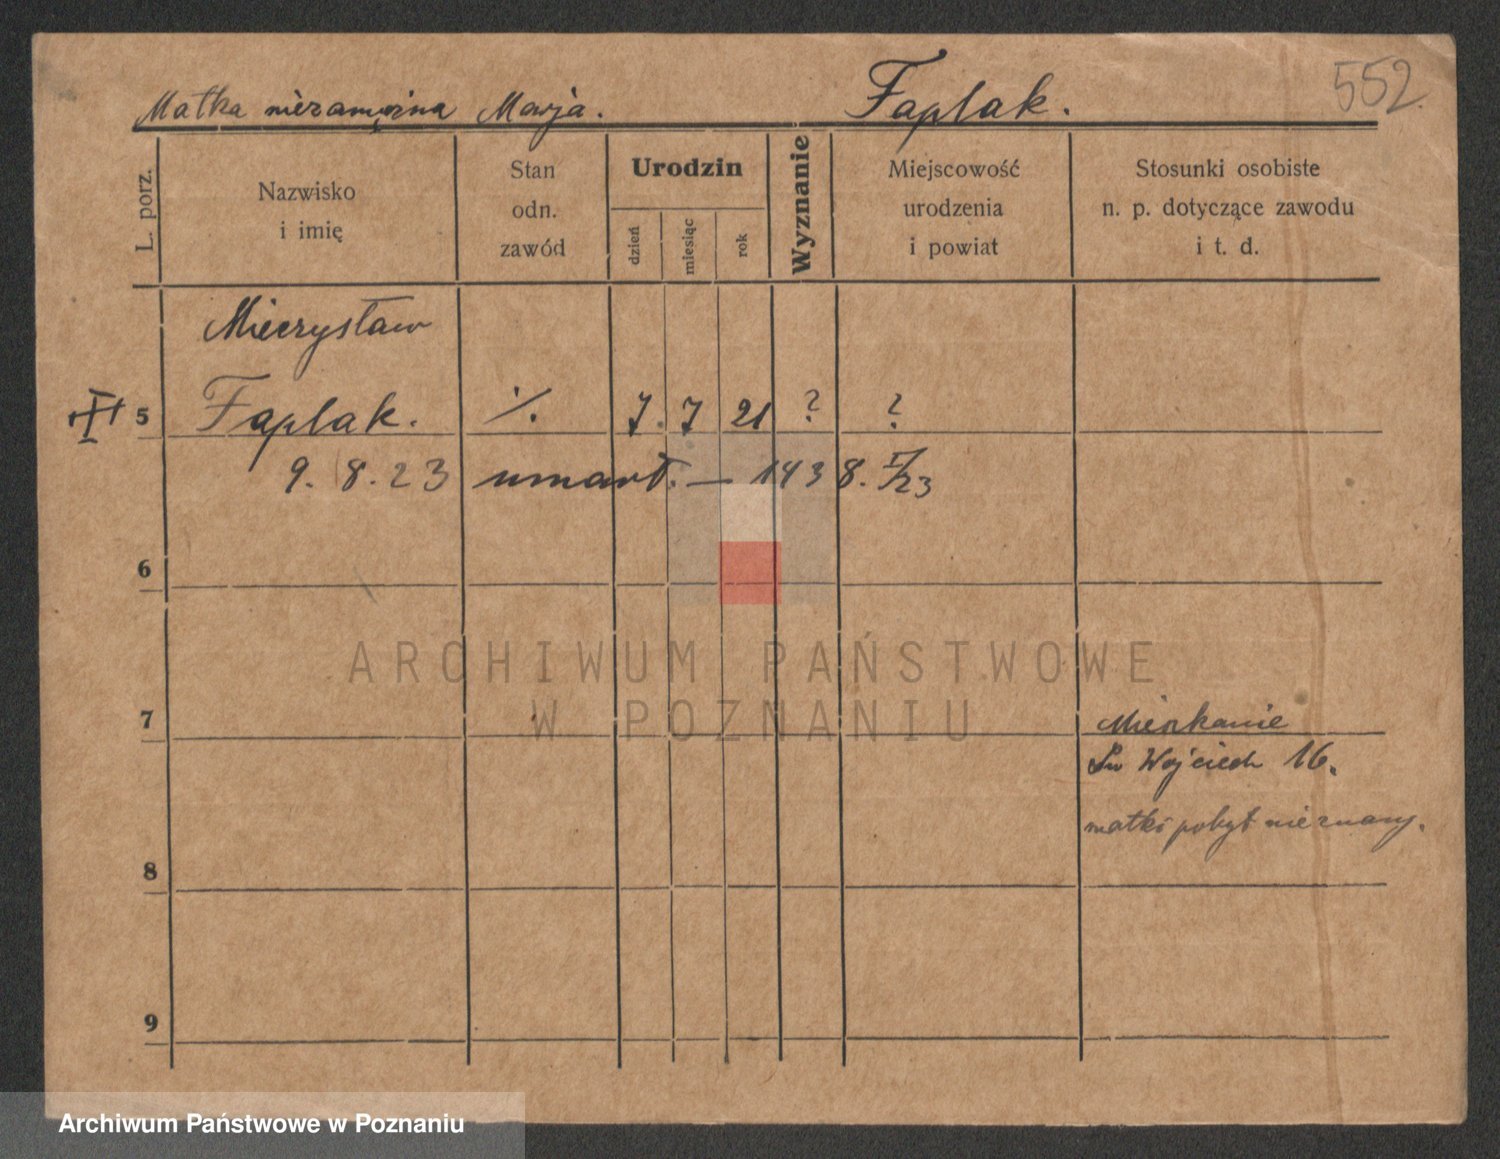 552.
Matka niezamężna Marja. Faplak.
L. porz.
Nazwisko
i imię
Stan
odn.
zawód
Urodzin
dzień
miesiąc
rok
Wyznanie
Miejscowość
urodzenia
i powiat
Stosunki osobiste
n. p. dotyczące zawodu
i t. d.
Mieczysław
5 Faplak. ·/. 7. 7 21 ? ?
9. 8. 23 umarł. — 143 8.
6
ARCHIWUM PAŃSTWOWE
W POZNANIU
7 Mieszkanie
Św Wojciech 16.
matki pobyt nieznany.
8
9
Archiwum Państwowe w Poznaniu